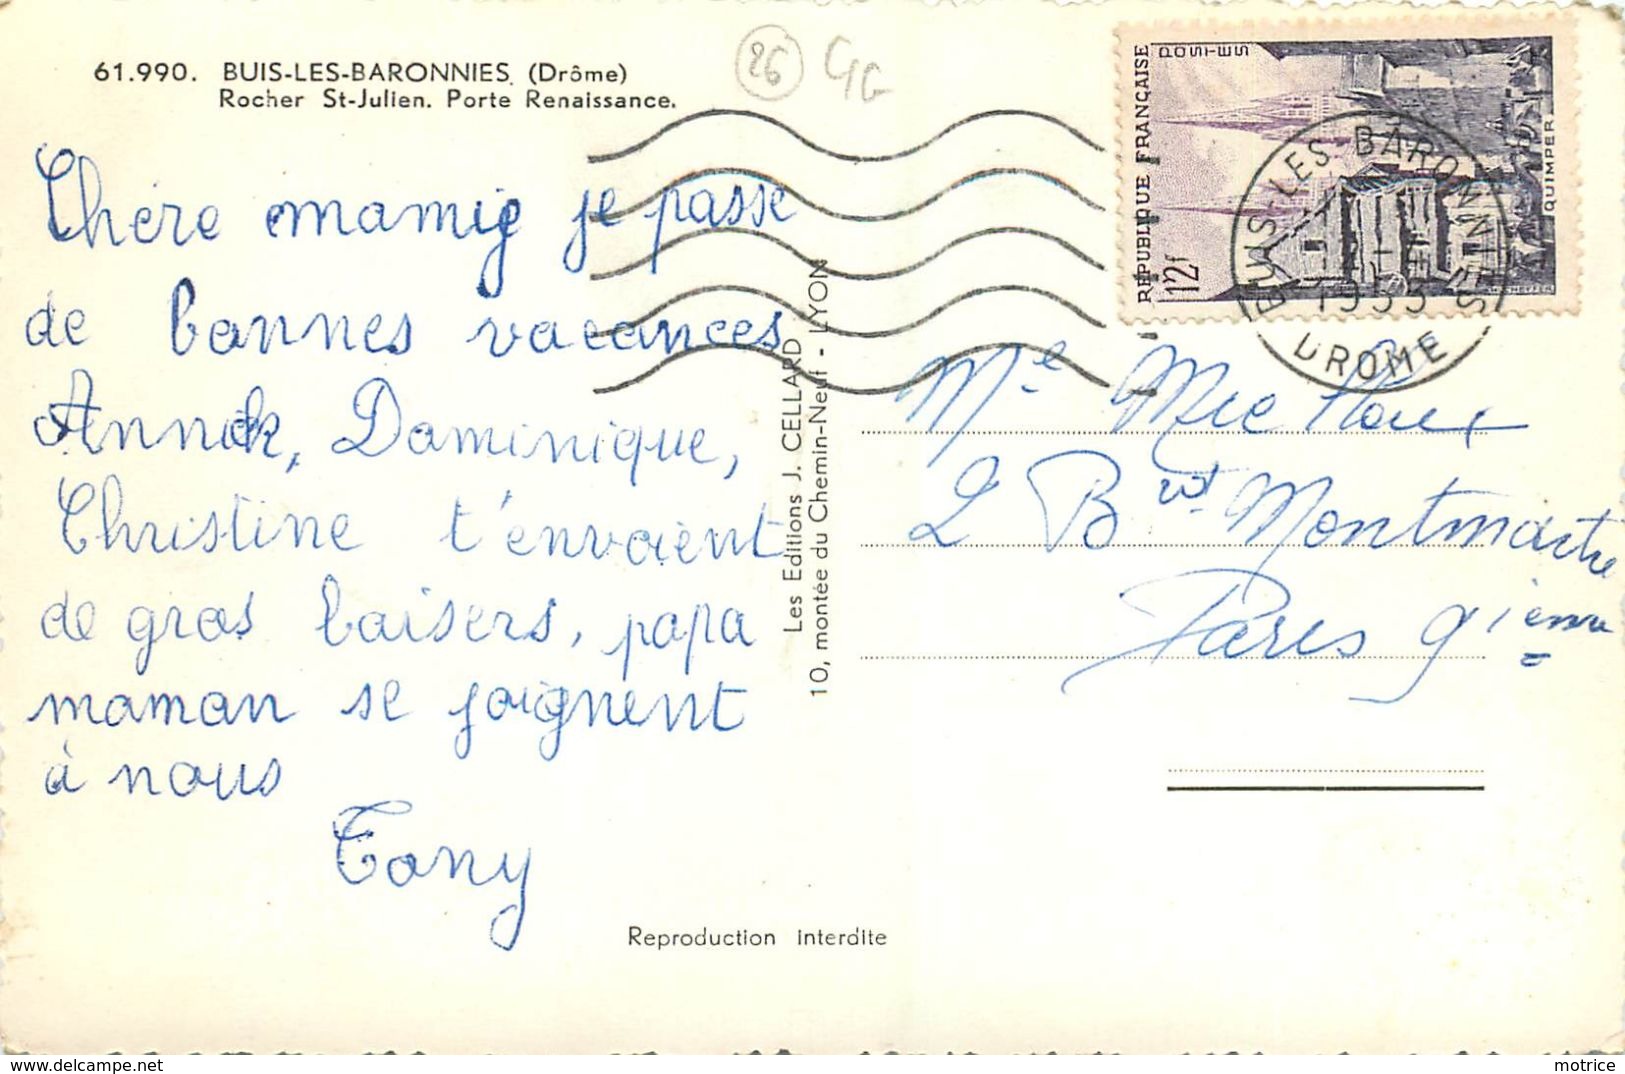 61.990. BUIS-LES-BARONNIES. (Drôme)
Rocher St-Julien. Porte Renaissance.
26
Chère mamie je passe
de bonnes vacances
Annick, Dominique,
Christine t'envoient
de gros baisers, papa
maman se joignent
à nous
Tony
Les Editions J. CELLARD
10, montée du Chemin-Neuf - LYON
Reproduction interdite
RÉPUBLIQUE FRANÇAISE
POSTES
12f
QUIMPER
BUIS-LES-BARONNIES
1953
DROME
Me
2 Bvd Montmartre
Paris 9ième
delcampe.net
motrice